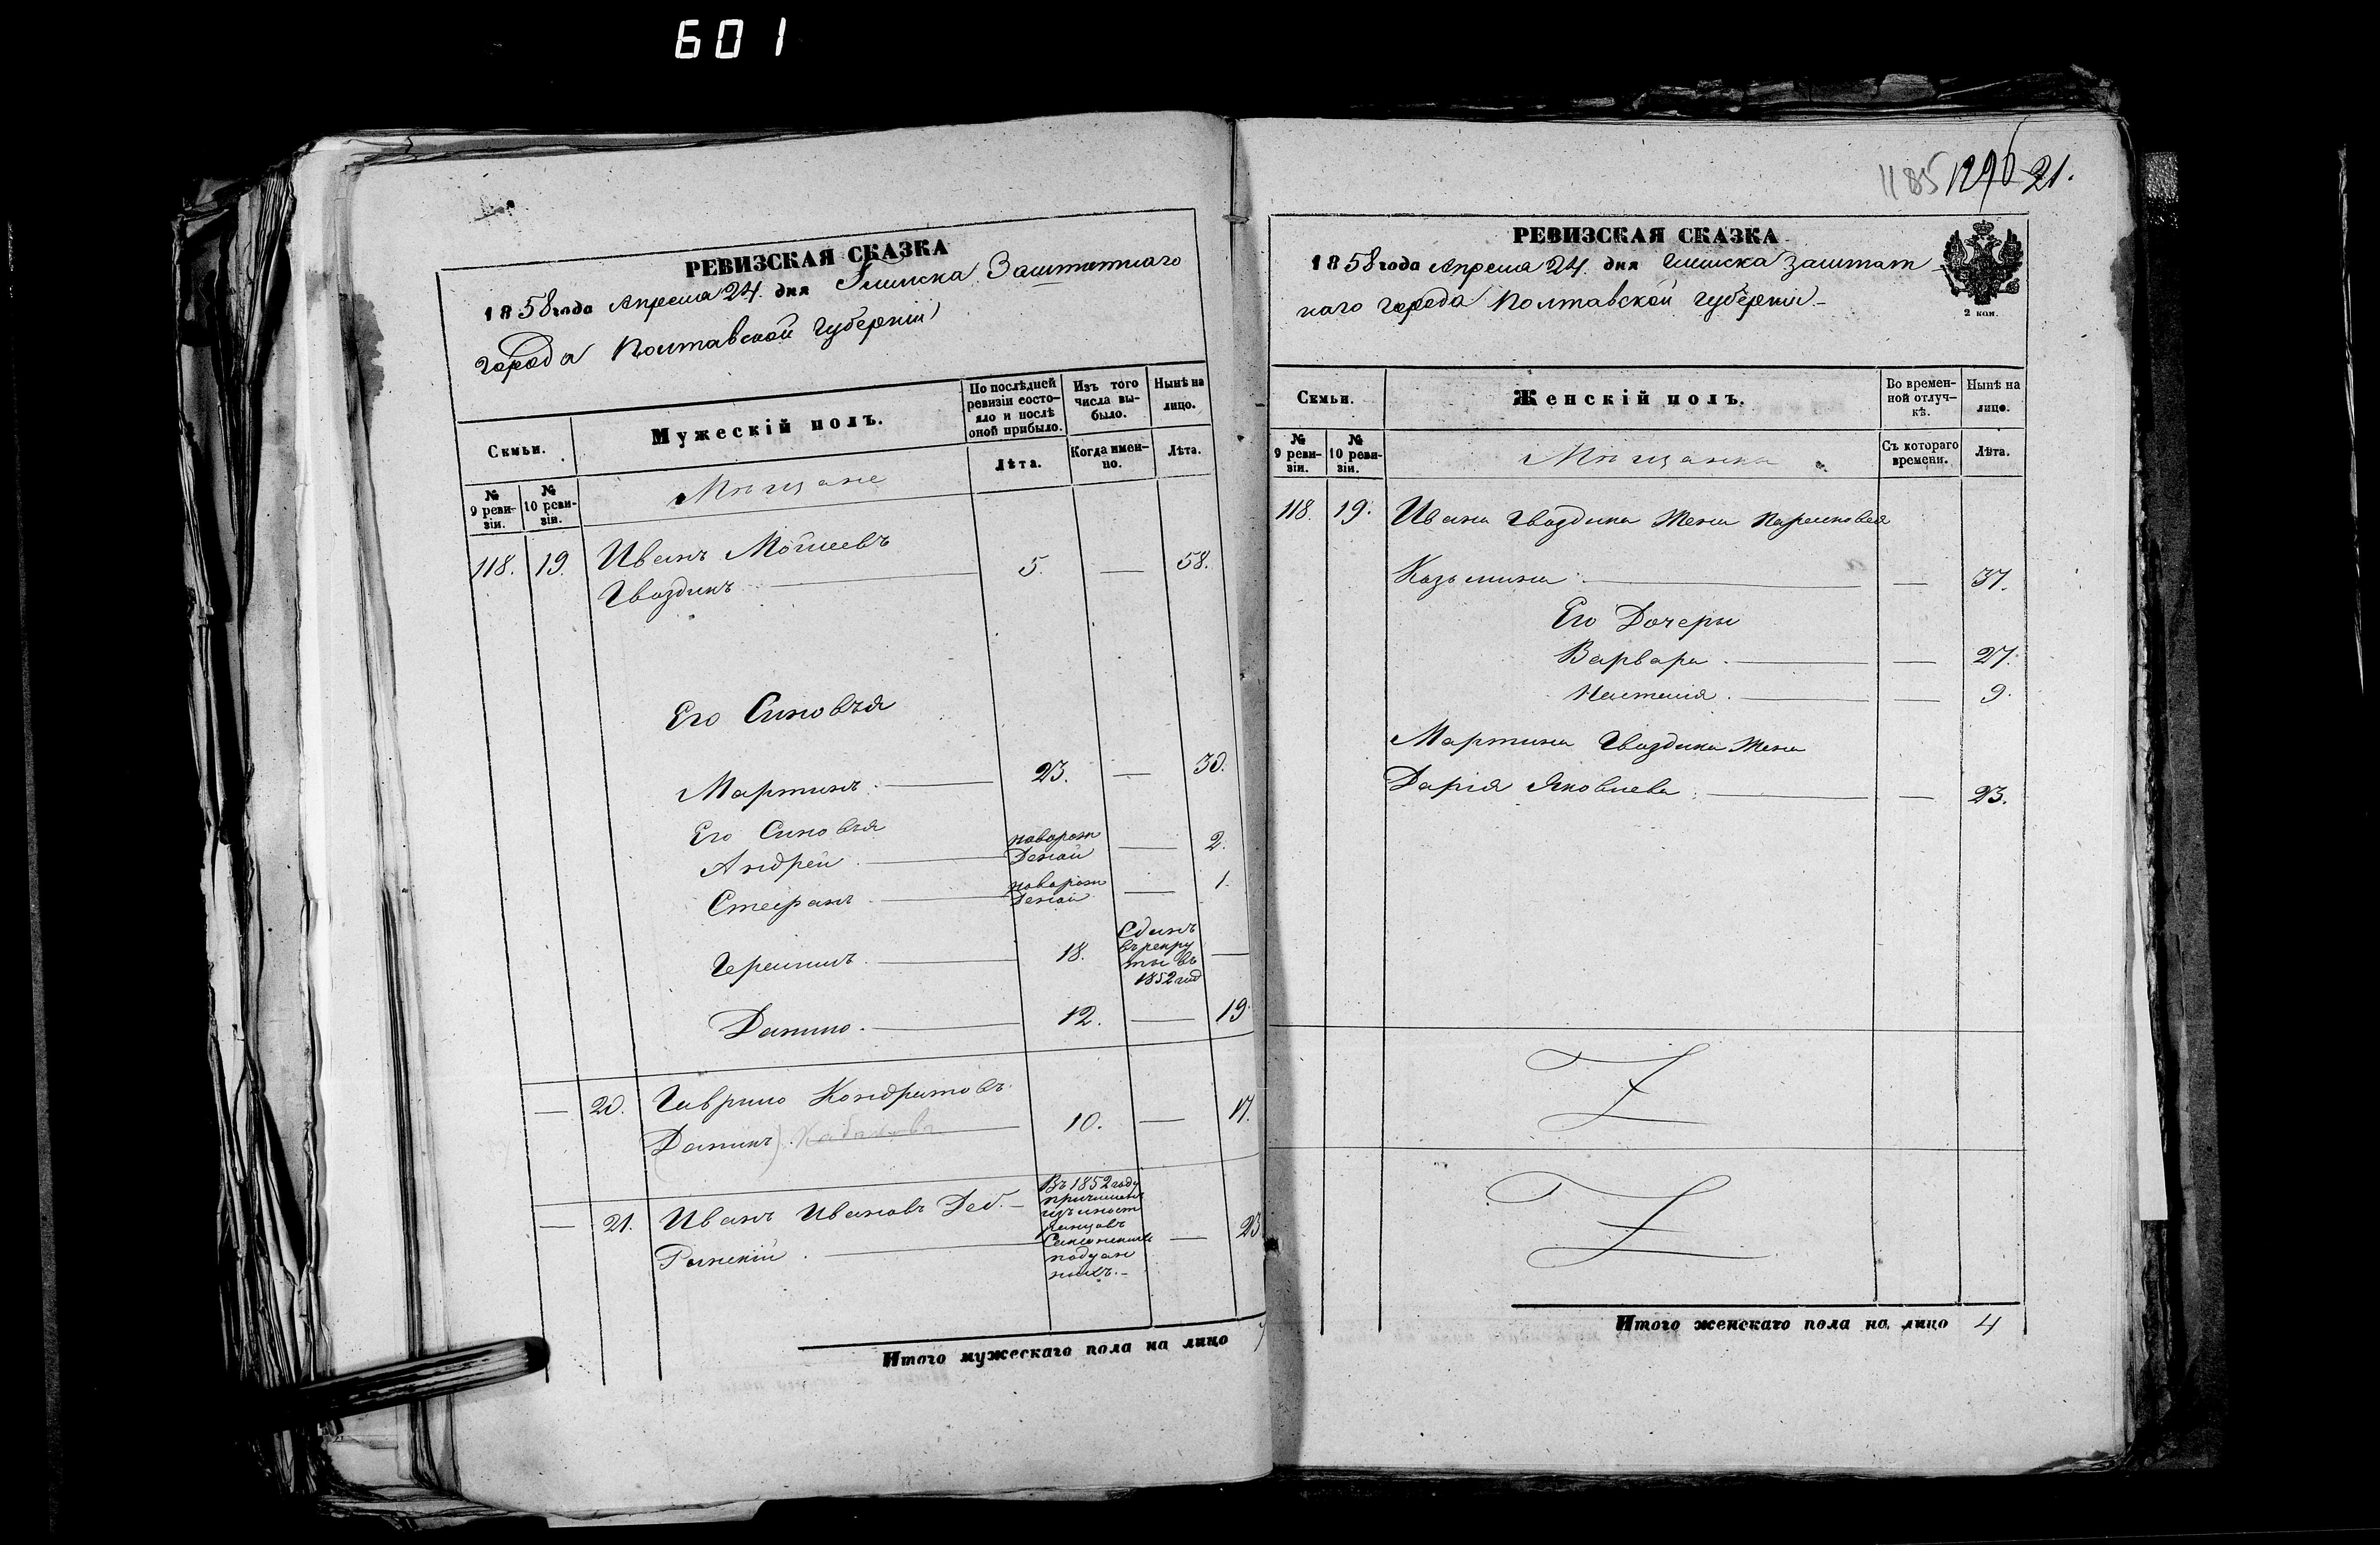 601
РЕВИЗСКАЯ СКАЗКА
1858 года Апреля 24. дня Глинска Заштатнаго
города Полтавской губерніи
Семьи.
Мужескій полъ.
По послѣдней ревизіи состояло и послѣ оной прибыло.
Изъ того числа выбыло.
Нынѣ на лицо.
№ 9 ревизіи.
№ 10 ревизіи.
Мѣщане
Лѣта.
Когда именно.
Лѣта.
118. 19. Иванъ Мойсеевъ
Гвоздикъ — 5. — 58.
Его Синовья
Мартинъ. — 23. — 30.
Его Синовья
Андрей. — новорожденой — 2.
Стефанъ — новорожденой — 1.
18. Сданъ въ рекруты въ 1852 год —
Данило. — 12. — 19.
— 20. Гаврило Кондратовъ
10. — 17.
— 21. Иванъ Ивановъ
Въ 1852 году
— 23
Итого мужескаго пола на лицо 7
1185 1296 21.
РЕВИЗСКАЯ СКАЗКА
1858 года Апреля 24. дня Глинска Заштат
наго города Полтавской губерніи
2 коп.
Семьи.
Женскій полъ.
Во временной отлучкѣ.
Нынѣ на лицо.
№ 9 ревизіи.
№ 10 ревизіи.
Мѣщанки
Съ котораго времени.
Лѣта.
118. 19. Ивана Гвоздика жена
Козьмина — — 37.
Его Дочеры
Варвара. — — 27.
— — 9.
Мартина Гвоздика жена
Дарія Яковлева. — — 23.
Итого женскаго пола на лицо 4